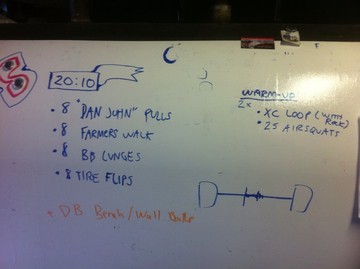 20:10
• 8 "DAN JOHN" PULLS
• 8 FARMERS WALK
• 8 BB LUNGES
• 8 TIRE FLIPS
x DB Bench/Wall Balls
WARM-UP
2x
• XC LOOP (WITH ROCK)
• 25 AIRSQUATS